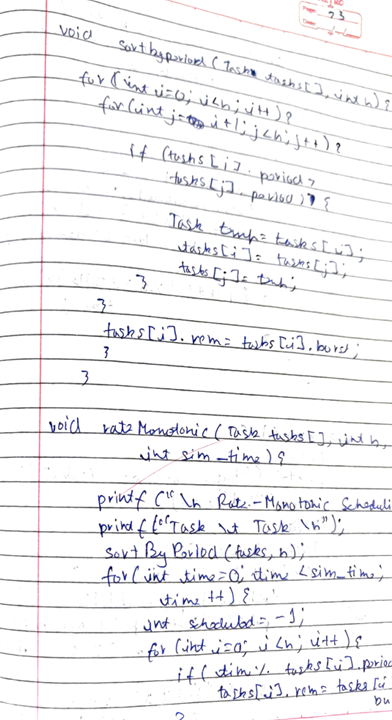 Page: 23
void sortbyperiod (Task tasks[], int n) {
for (int i=0; i<n; i++) {
for (int j= i+1; j<n; j++) {
if (tasks[i]. period >
tasks[j]. period) {
Task tmp = tasks[i];
tasks[i] = tasks[j];
tasks[j] = tmp;
}
}
tasks[i]. rem = tasks[i]. burst;
}
}
void rateMonotonic (Task tasks[], int n,
int sim_time) {
printf ("\n Rate-Monotonic Scheduli
printf ("Task \t Task \n");
sort By Period (tasks, n);
for (int time=0; time <sim_time;
time ++) {
int scheduled = -1;
for (int i=0; i<n; i++) {
if ( time % tasks[i]. period
tasks[i]. rem = tasks[i
bu